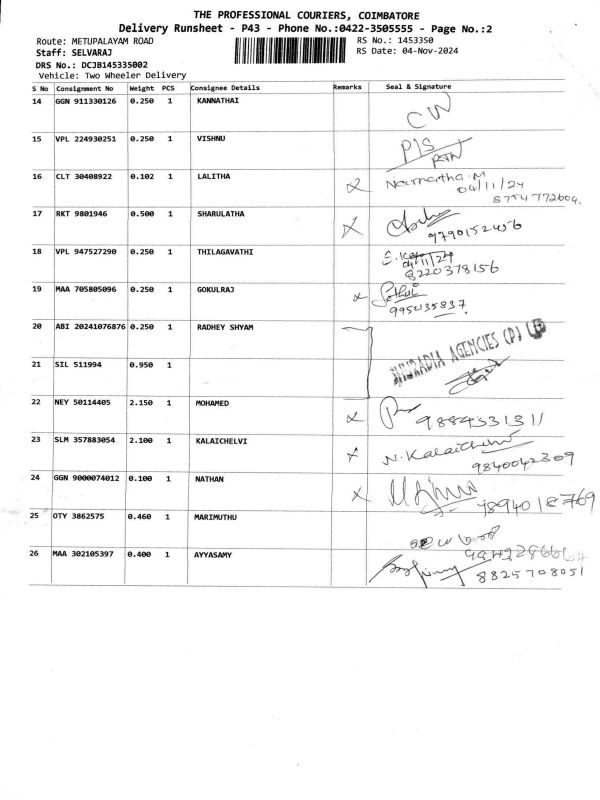 THE PROFESSIONAL COURIERS, COIMBATORE
Delivery Runsheet - P43 - Phone No.:0422-3505555 - Page No.:2
Route: METUPALAYAM ROAD RS No.: 1453350
Staff: SELVARAJ RS Date: 04-Nov-2024
DRS No.: DCJB145335002
Vehicle: Two Wheeler Delivery
S No Consignment No Weight PCS Consignee Details Remarks Seal & Signature
14 GGN 911330126 0.250 1 KANNATHAI
15 VPL 224930251 0.250 1 VISHNU P/S
16 CLT 30408922 0.102 1 LALITHA X Namartha.M
04/11/24
8754772604.
17 RKT 9801946 0.500 1 SHARULATHA X
9790152456
18 VPL 947527290 0.250 1 THILAGAVATHI
04/11/24
8220378156
19 MAA 705805096 0.250 1 GOKULRAJ X
995435837
20 ABI 20241076876 0.250 1 RADHEY SHYAM
AGENCIES (P) LTD
21 SIL 511994 0.950 1
22 NEY 50114405 2.150 1 MOHAMED X 9884331311
23 SLM 357883054 2.100 1 KALAICHELVI X N.Kalaichelvi
9840042309
24 GGN 9000074012 0.100 1 NATHAN X
9894018769
25 OTY 3862575 0.460 1 MARIMUTHU
26 MAA 302105397 0.400 1 AYYASAMY
8825708051